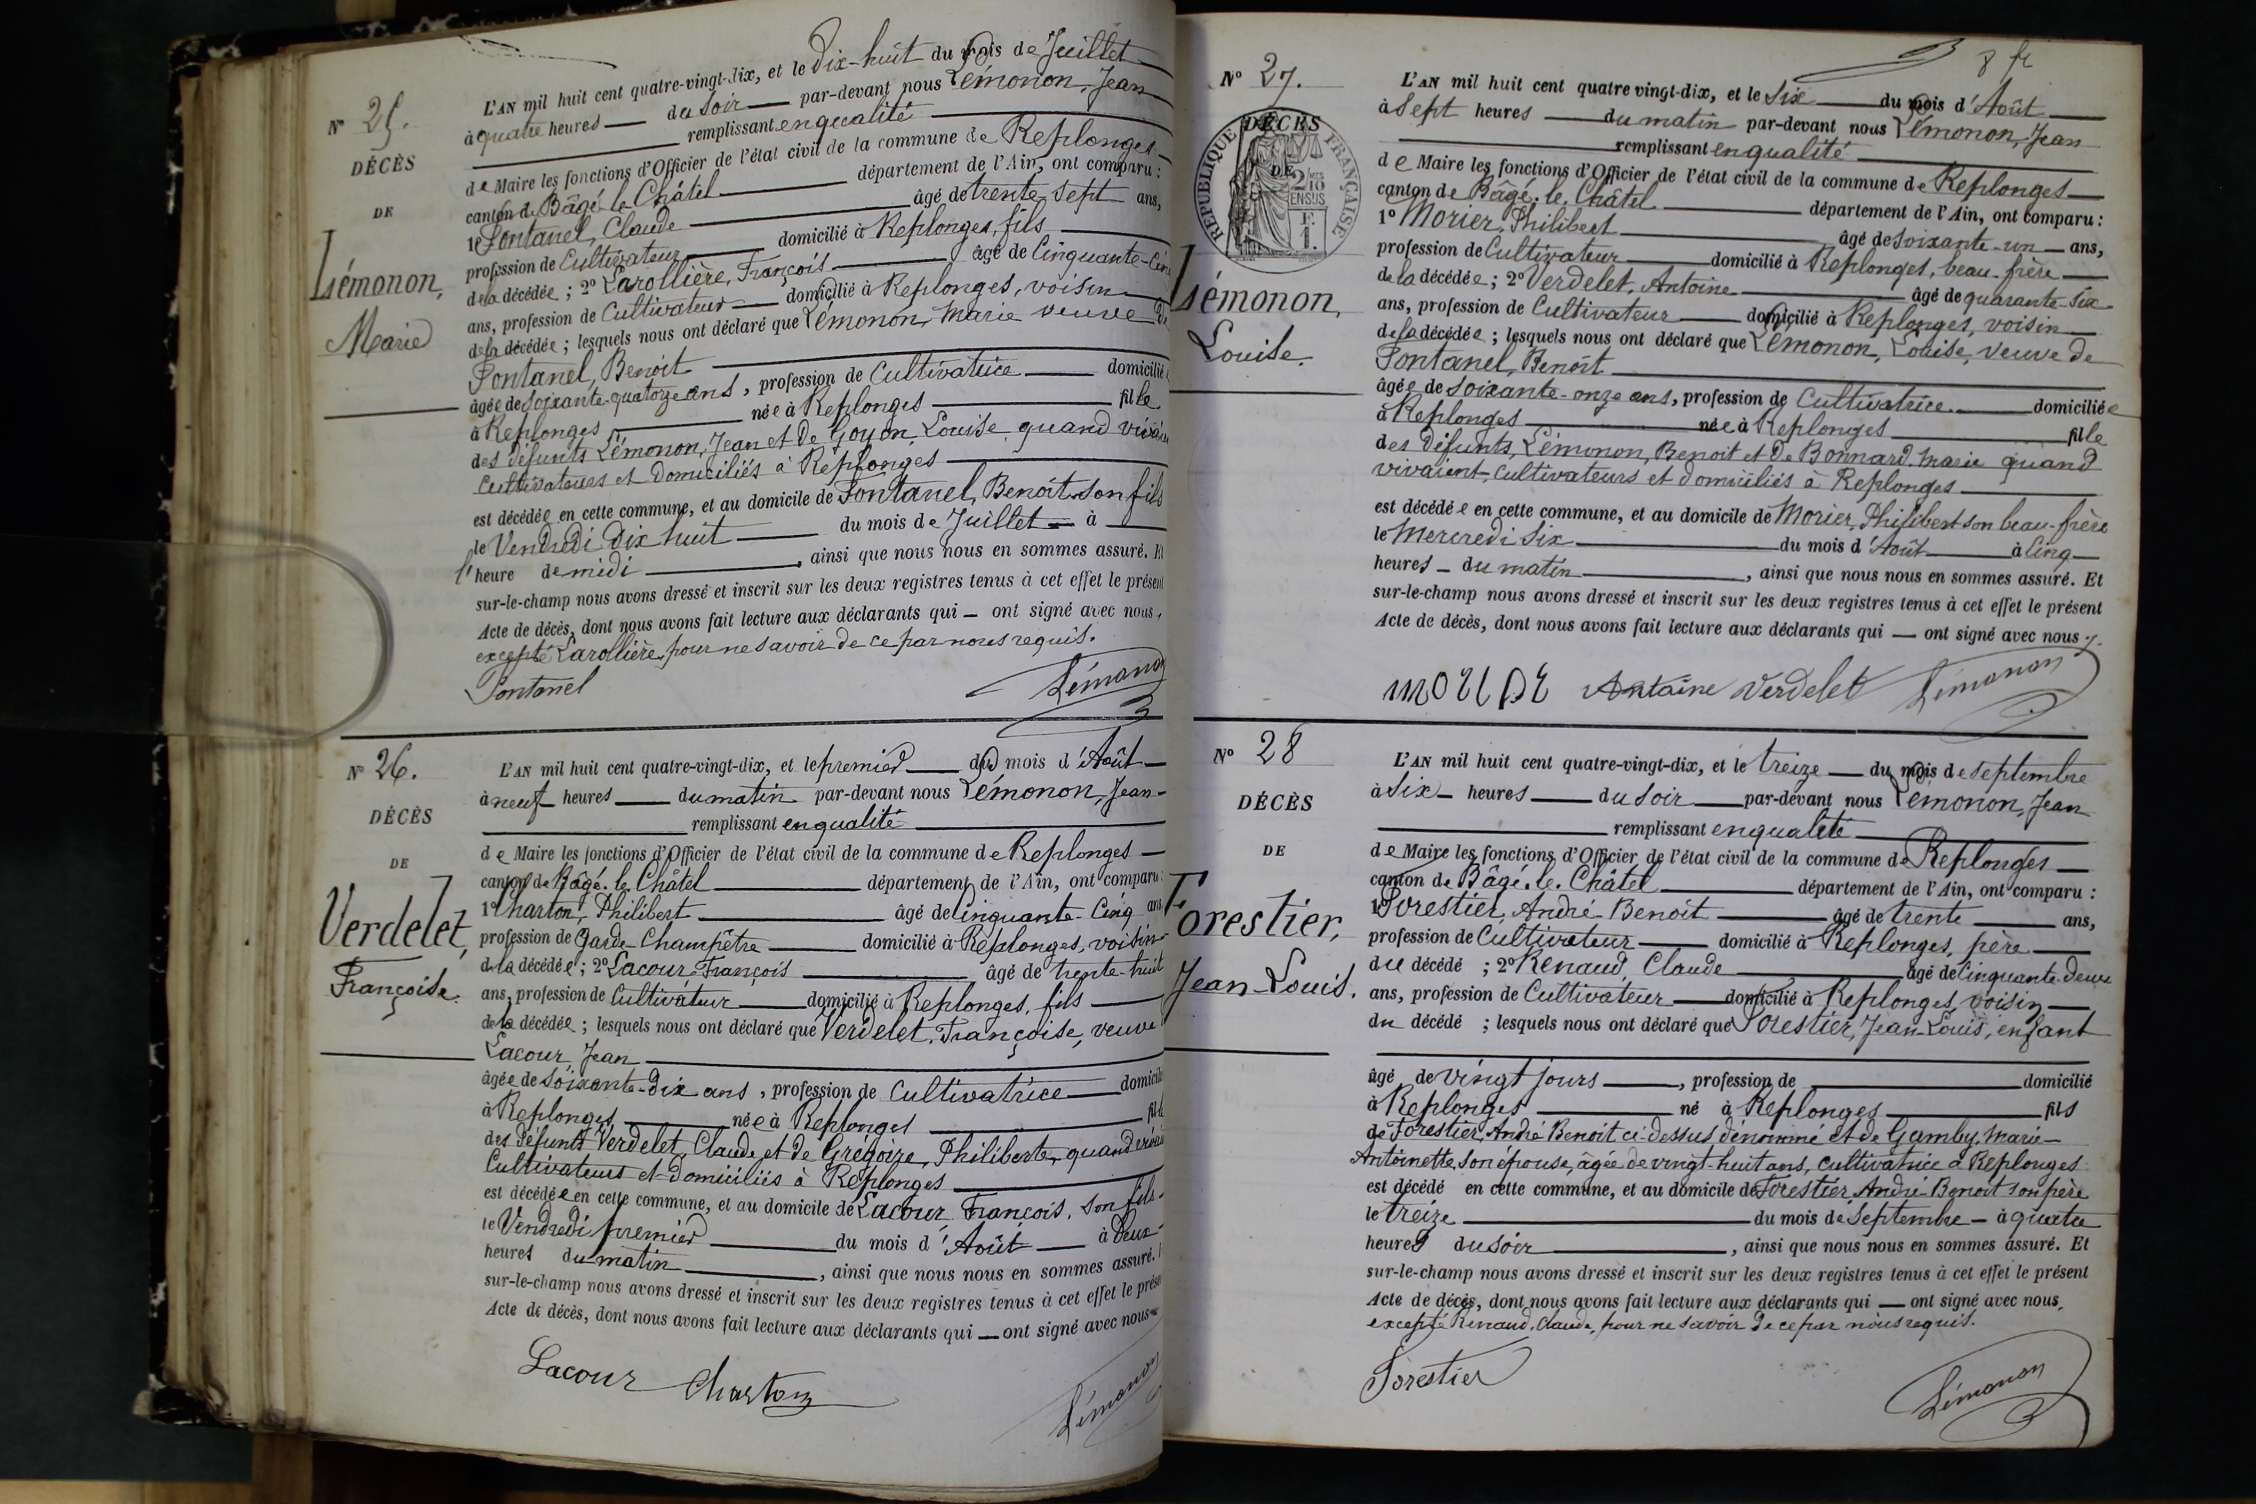 N° 25.
DÉCÈS
DE
Lémonon,
Marie
L'AN mil huit cent quatre-vingt-dix, et le Dix-huit du mois de Juillet
à quatre heures du soir par-devant nous Lémonon, Jean
remplissant en qualité
de Maire les fonctions d'Officier de l'état civil de la commune de Replonges
canton de Bâgé-le-Châtel département de l'Ain, ont comparu :
1° Fontanel, Claude âgé de trente sept ans,
profession de Cultivateur domicilié à Replonges, fils
de la décédée ; 2° Larollière, François âgé de Cinquante-Cinq
ans, profession de Cultivateur domicilié à Replonges, voisin
de la décédée ; lesquels nous ont déclaré que Lémonon, Marie veuve de
Fontanel, Benoit
âgée de soixante-quatorze ans, profession de Cultivatrice domicilié
à Replonges née à Replonges fille
des défunts Lémonon, Jean et de Goyon, Louise quand vivaient
Cultivateurs et domiciliés à Replonges
est décédée en cette commune, et au domicile de Fontanel, Benoit son fils
le Vendredi dix huit du mois de Juillet à
l'heure de midi, ainsi que nous nous en sommes assuré. Et
sur-le-champ nous avons dressé et inscrit sur les deux registres tenus à cet effet le présent
Acte de décès, dont nous avons fait lecture aux déclarants qui ont signé avec nous,
excepté Larollière, pour ne savoir de ce par nous requis.
Fontanel Lémonon
N° 26.
DÉCÈS
DE
Verdelet,
Françoise.
L'AN mil huit cent quatre-vingt-dix, et le premier du mois d'Août
à neuf heures du matin par-devant nous Lémonon, Jean
remplissant en qualité
de Maire les fonctions d'Officier de l'état civil de la commune de Replonges
canton de Bâgé-le-Châtel département de l'Ain, ont comparu :
1° Charton, Philibert âgé de Cinquante-Cinq ans
profession de Garde-Champêtre domicilié à Replonges, voisin
de la décédée ; 2° Lacour François âgé de trente-huit
ans, profession de Cultivateur domicilié à Replonges, fils
de la décédée ; lesquels nous ont déclaré que Verdelet, Françoise, veuve
Lacour Jean
âgée de Soixante-dix ans, profession de Cultivatrice domicilié
à Replonges née à Replonges fille
des défunts Verdelet, Claude et de Grégoire, Philiberte, quand vivaient
Cultivateurs et domiciliés à Replonges
est décédée en cette commune, et au domicile de Lacour François, son fils
le Vendredi premier du mois d'Août à deux
heures du matin, ainsi que nous nous en sommes assuré.
sur-le-champ nous avons dressé et inscrit sur les deux registres tenus à cet effet le présent
Acte de décès, dont nous avons fait lecture aux déclarants qui ont signé avec nous
Lacour Charton Lémonon
8 fr
N° 27.
RÉPUBLIQUE FRANÇAISE
DÉCÈS
DE
Lémonon,
Louise.
L'AN mil huit cent quatre vingt-dix, et le Six du mois d'Août
à Sept heures du matin par-devant nous Lémonon, Jean
remplissant en qualité
de Maire les fonctions d'Officier de l'état civil de la commune de Replonges
canton de Bâgé-le-Châtel département de l'Ain, ont comparu :
1° Morier, Philibert âgé de Soixante-un ans,
profession de Cultivateur domicilié à Replonges, beau-frère
de la décédée ; 2° Verdelet, Antoine âgé de quarante-six
ans, profession de Cultivateur domicilié à Replonges, voisin
de la décédée ; lesquels nous ont déclaré que Lémonon, Louise, veuve de
Fontanel, Benoit
âgée de soixante-onze ans, profession de Cultivatrice domiciliée
à Replonges née à Replonges fille
des défunts, Lémonon, Benoit et de Bonnard Marie quand
vivaient, cultivateurs et domiciliés à Replonges
est décédée en cette commune, et au domicile de Morier, Philibert son beau-frère
le Mercredi Six du mois d'Août à Cinq
heures du matin, ainsi que nous nous en sommes assuré. Et
sur-le-champ nous avons dressé et inscrit sur les deux registres tenus à cet effet le présent
Acte de décès, dont nous avons fait lecture aux déclarants qui ont signé avec nous
Antoine Verdelet Lémonon
N° 28
DÉCÈS
DE
Forestier,
Jean-Louis.
L'AN mil huit cent quatre-vingt-dix, et le treize du mois de septembre
à Six heures du soir par-devant nous Lémonon, Jean
remplissant en qualité
de Maire les fonctions d'Officier de l'état civil de la commune de Replonges
canton de Bâgé-le-Châtel département de l'Ain, ont comparu :
1° Forestier, André-Benoit âgé de trente ans,
profession de Cultivateur domicilié à Replonges, père
du décédé ; 2° Renaud, Claude âgé de Cinquante-deux
ans, profession de Cultivateur domicilié à Replonges, voisin
du décédé ; lesquels nous ont déclaré que Forestier, Jean-Louis, enfant
âgé de vingt jours, profession de domicilié
à Replonges né à Replonges fils
de Forestier, André Benoit ci-dessus dénommé et de Gamby, Marie-
Antoinette, son épouse, âgée de vingt-huit ans, cultivatrice à Replonges
est décédé en cette commune, et au domicile de Forestier, André-Benoit son père
le treize du mois de Septembre à quatre
heures du soir, ainsi que nous nous en sommes assuré. Et
sur-le-champ nous avons dressé et inscrit sur les deux registres tenus à cet effet le présent
Acte de décès, dont nous avons fait lecture aux déclarants qui ont signé avec nous,
excepté Renaud, Claude, pour ne savoir de ce par nous requis.
Forestier Lémonon